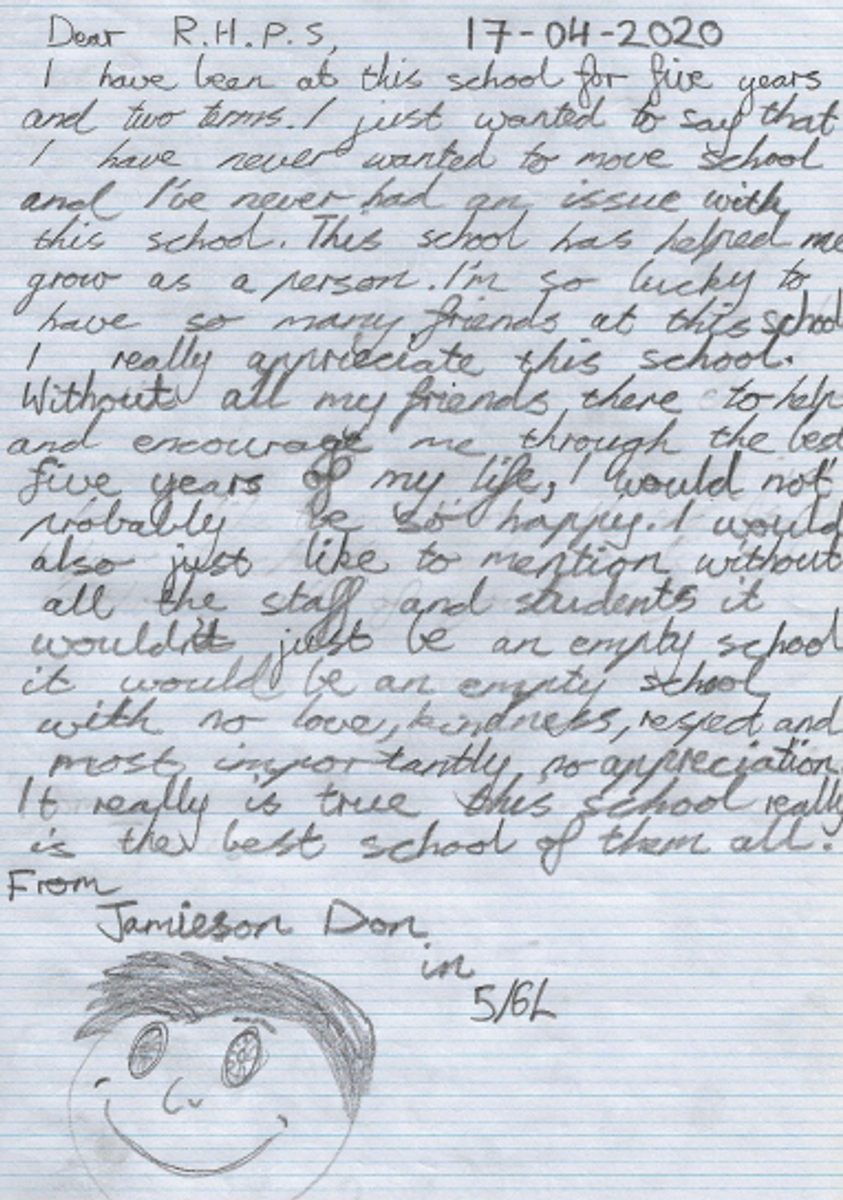 Dear R.H.P.S, 17-04-2020
I have been at this school for five years
and two terms. I just wanted to say that
I have never wanted to move school
and I've never had an issue with
this school. This school has helped me
grow as a person. I'm so lucky to
have so many friends at this school
I really appricciate this school.
Without all my friends there to help
and encourage me through the best
five years of my life, I would not
probably be so happy. I would
also just like to mention without
all the staff and students it
wouldn't just be an empty school
it would be an empty school
with no love, kindness, respect and
most importantly no appreciation.
It really is true this school really
is the best school of them all.
From
Jamieson Don
in
5/6L